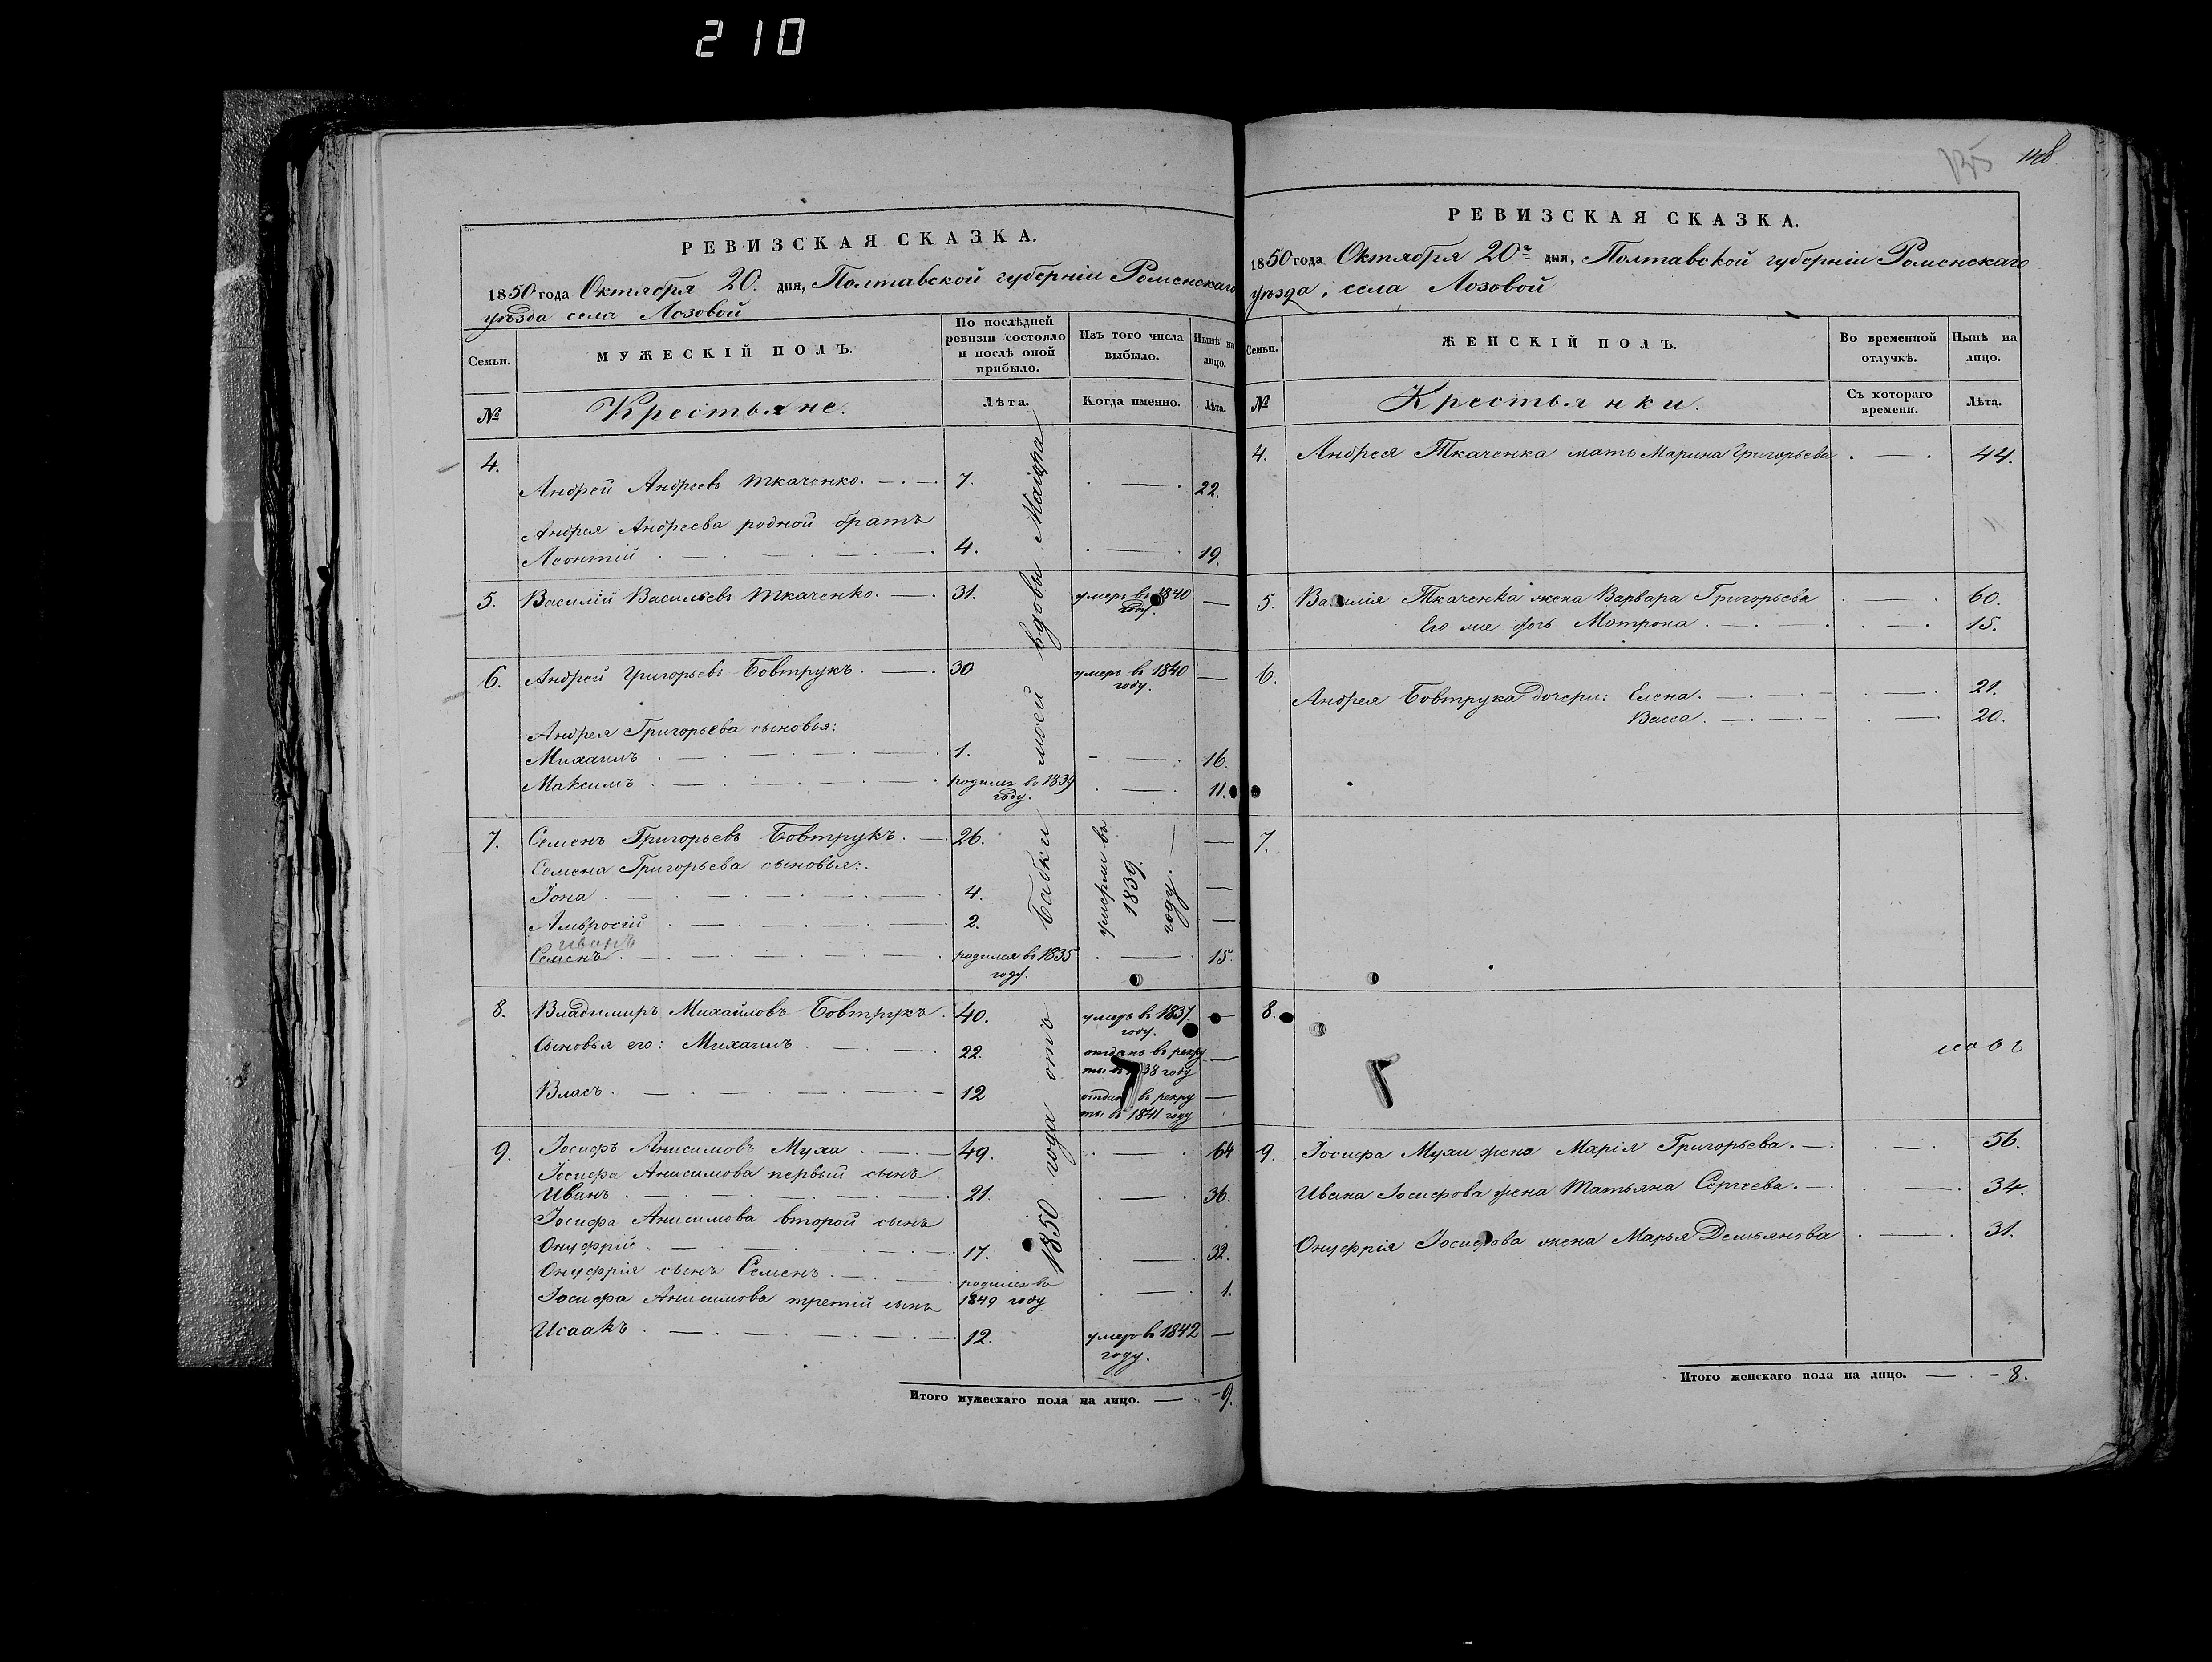 210
РЕВИЗСКАЯ СКАЗКА.
1850 года Октября 20. дня, Полтавской губерніи Роменскаго
уѣзда села Лозовой
Семьи.
МУЖЕСКІЙ ПОЛЪ.
По послѣдней ревизіи состояло и послѣ оной прибыло.
Изъ того числа выбыло.
Нынѣ на лицо.
№
Крестьяне.
Лѣта.
Когда именно.
Лѣта.
4.
Андрей Андреевъ Ткаченко. 7. 22.
Андрея Андреева родной братъ
Леонтій 4. 19.
5. Василій Васильевъ Ткаченко. 31. умеръ въ 1840 году. —
6. Андрей Григорьевъ Бовтрукъ. 30 умеръ въ 1840 году. —
Андрея Григорьева сыновья:
Михаилъ 1. 16.
Максимъ родился въ 1839 году. 11.
7. Семенъ Григорьевъ Бовтрукъ. 26. —
Семена Григорьева сыновья:
Іона 4. —
Амвросій 2. —
умерли въ 1839. году.
Иванъ
Семенъ родился въ 1835 году. 15.
8. Владимиръ Михайловъ Бовтрукъ. 40. умеръ въ 1837. году. —
Сыновья его: Михаилъ 22. отданъ въ рекруты въ 38 году —
Власъ 12 отдан въ рекруты въ 1841 году —
9. Іосифъ Анисимовъ Муха 49. 64
Іосифа Анисимова первый сынъ
Иванъ 21. 36.
Іосифа Анисимова второй сынъ
Онуфрій 17. 32.
Онуфрія сынъ Семенъ родился въ 1849 году 1.
Іосифа Анисимова третій сынъ
Исаакъ 12. умеръ въ 1842 году. —
1850 года отъ Бабки моей вдовы Маіора
Итого мужескаго пола на лицо. — 9.
135
148
РЕВИЗСКАЯ СКАЗКА.
1850 года Октября 20го дня, Полтавской губерніи Роменскаго
уѣзда, села Лозовой
Семьи.
ЖЕНСКІЙ ПОЛЪ.
Во временной отлучкѣ.
Нынѣ на лицо.
№
Крестьянки.
Съ котораго времени.
Лѣта.
4. Андрея Ткаченка мать Марина Григорьева 44.
5. Василія Ткаченка жена Варвара Григорьева 60.
Его же дочь Мотрона 15.
6.
Андрея Бовтрука дочери: Елена. 21.
Васса. 20.
7.
8.
9. Іосифа Мухи жена Марія Григорьева. 56.
Ивана Іосифова жена Татьяна Сергѣева. 34.
Онуфрія Іосифова жена Марья Демьянова 31.
Итого женскаго пола на лицо. — 8.